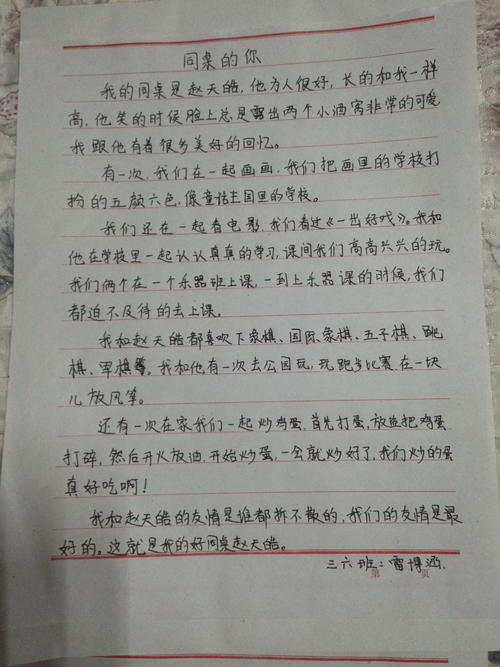 同桌的你
我的同桌是赵天皓,他为人很好,长的和我一样
高,他笑的时候脸上总是露出两个小酒窝非常的可爱
我跟他有着很多美好的回忆。
有一次,我们在一起画画,我们把画里的学校打
扮的五颜六色,像童话王国里的学校。
我们还在一起看电影,我们看过《一出好戏》。我和
他在学校里一起认认真真的学习,课间我们高高兴兴的玩。
我们俩个在一个乐器班上课,一到上乐器课的时候,我们
都迫不及待的去上课。
我和赵天皓都喜欢下象棋、国际象棋、五子棋、跳
棋、军棋等。我和他有一次去公园玩,玩跑步比赛在一块
儿放风筝。
还有一次在家我们一起炒鸡蛋,首先打蛋,放盐把鸡蛋
打碎,然后开火放油,开始炒蛋,一会就炒好了,我们炒的蛋
真好吃啊!
我和赵天皓的友情是谁都拆不散的,我们的友情是最
好的。这就是我的好同桌赵天皓。
三六班:雷博涵.
第 页